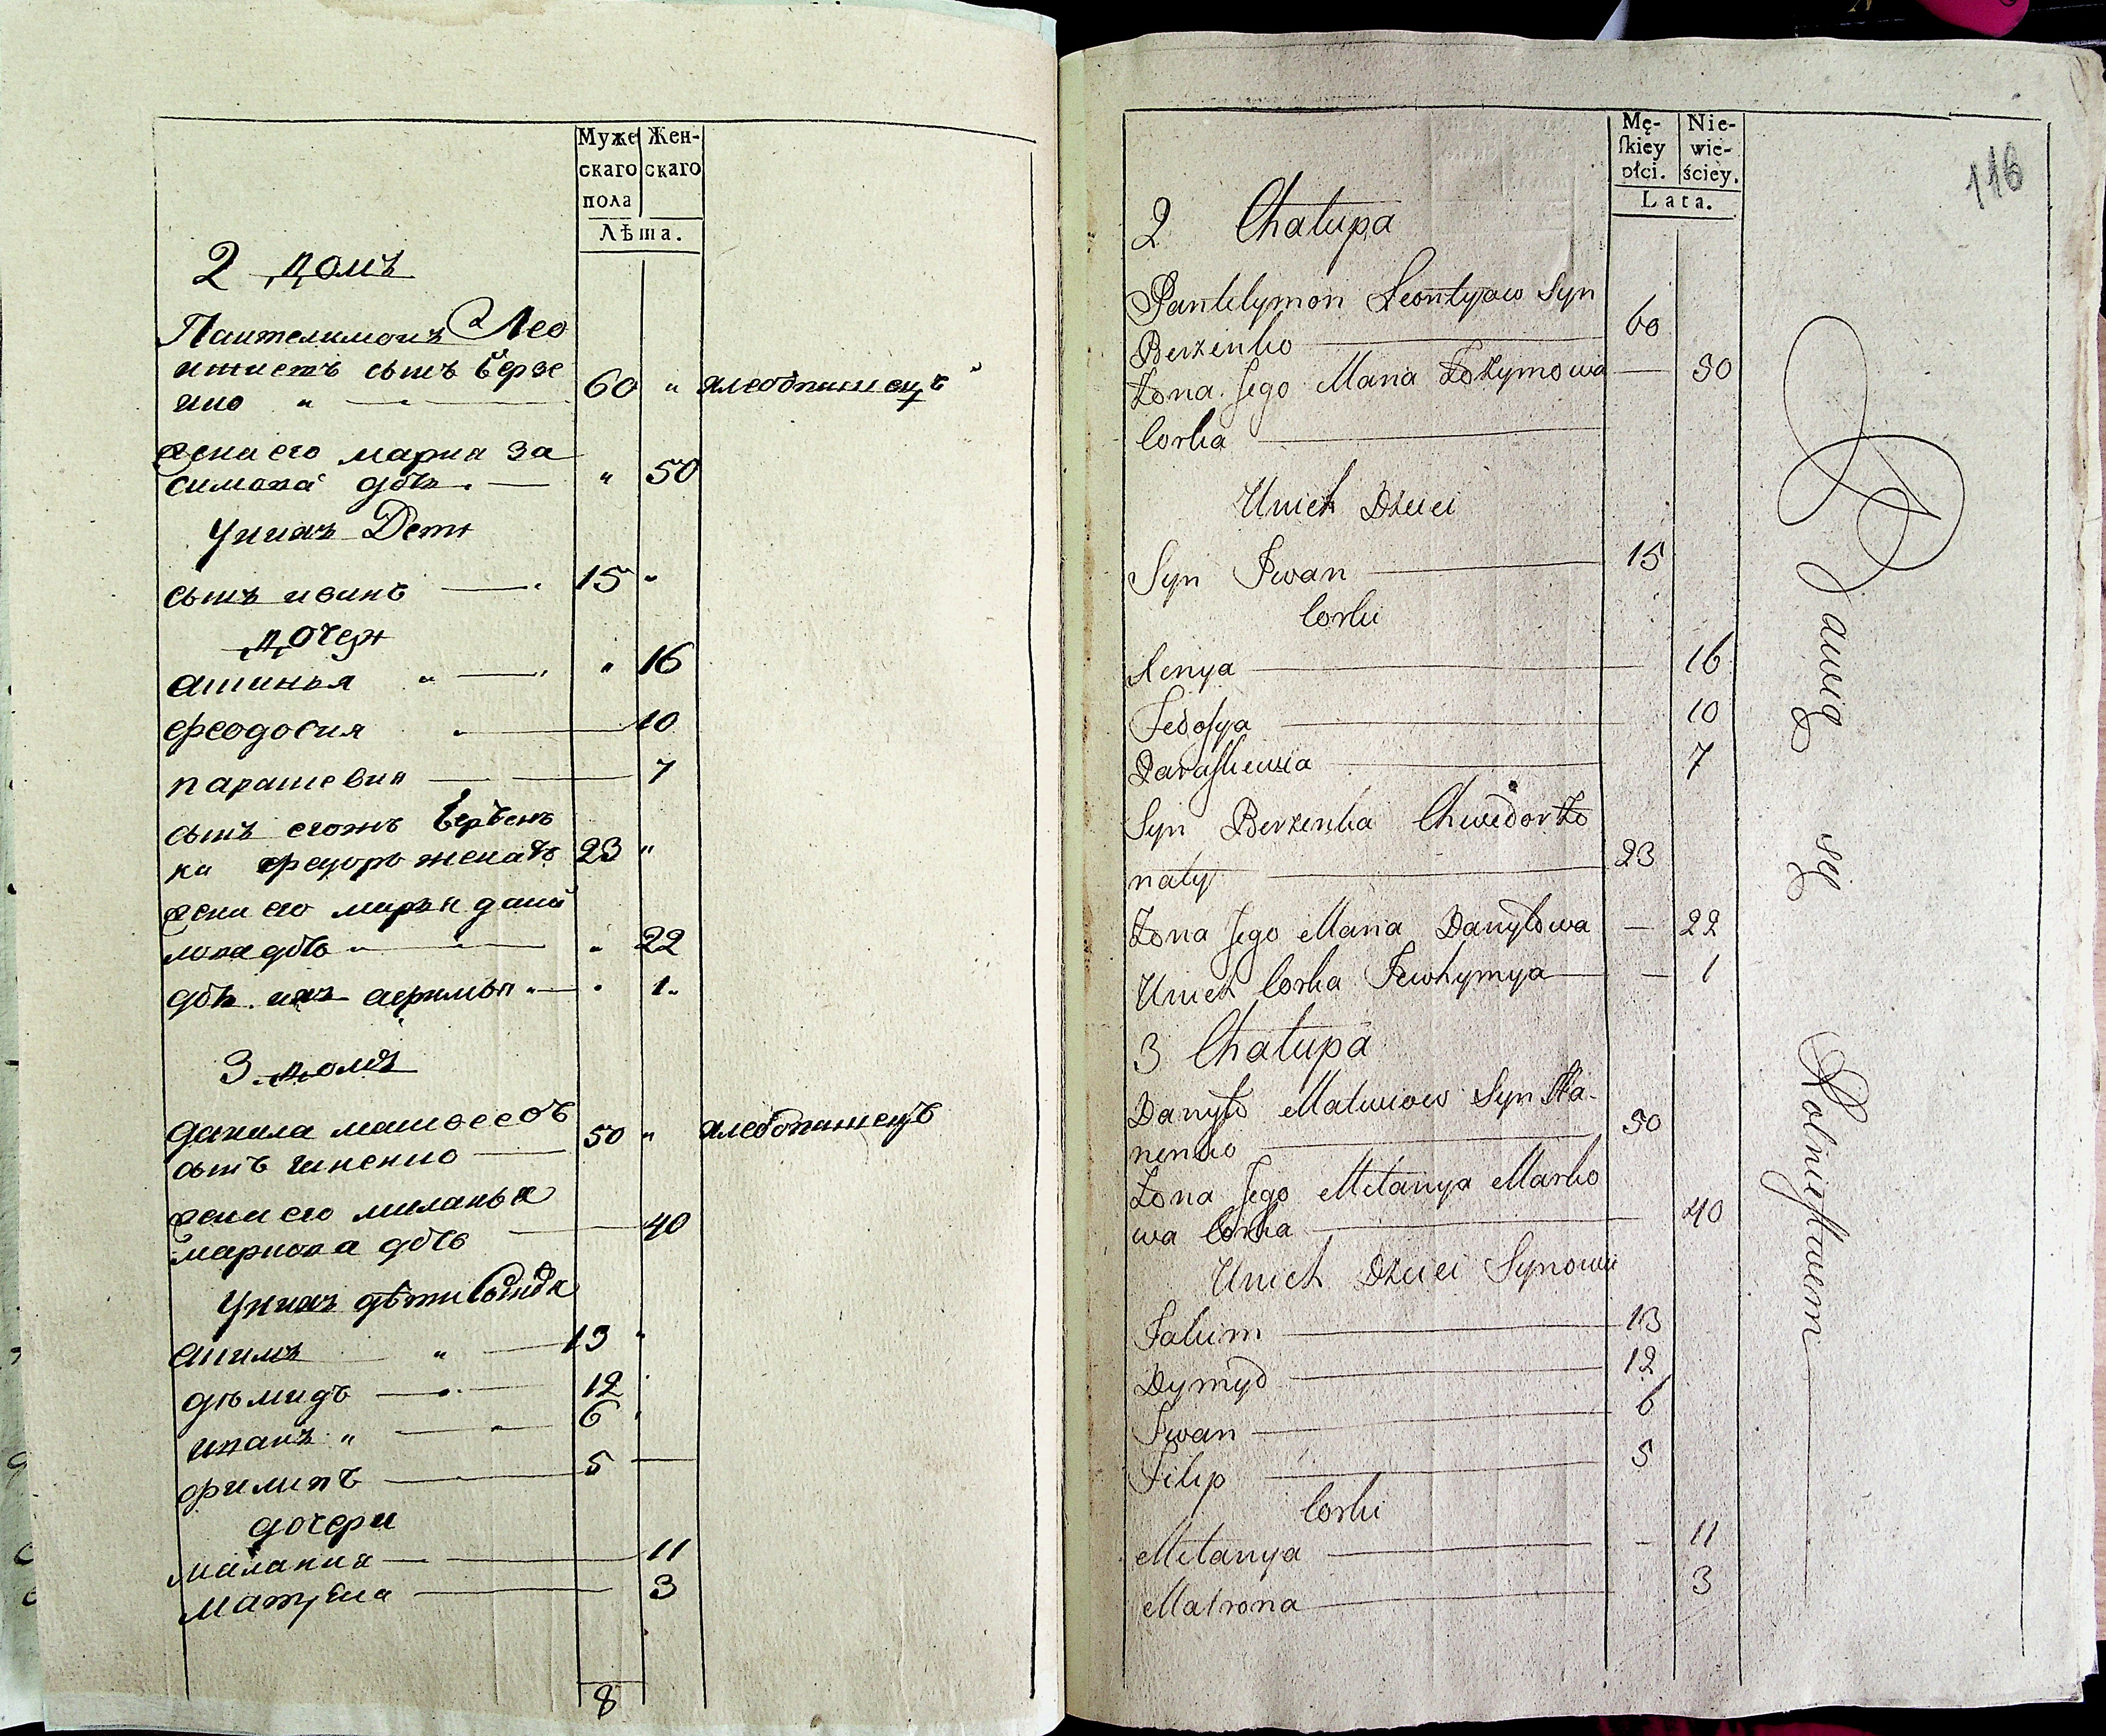 Муже Жен-
скаго скаго
пола
Лѣта.
2 домъ
Пантелимонъ Лео
нтиевъ сынъ Берзе
нко " 60 " хлебопашецъ
жена его мария За
симова дочь " 50
У них Дети
сынъ иванъ 15 "
дочери
аксинья " " 16
феодосия 10
парашевия 7
сынъ егожъ Берзен
ка федоръ женатъ 23 "
жена его марья дани
лова дочь " 22
дочь их афимья " 1
3 домъ
данила матвеевъ
сынъ 50 " хлебопашецъ
жена его миланья
маркова дочь 40
У них дети
акимъ " 13 "
демидъ 12
иванъ " 6
филипъ 5
дочери
малания 11
матрена 3
8
Mę- Nie-
ſkiey wie-
płci. ściey.
Lata.
116
2 Chałupa
Pantelymon Leontyow Syn
Berzenko 60
Żona Jego Maria Zozymowa 50
Corka
Unich Dzieci
Syn Iwan 15
Corki
Xenya 16
Fedoſya 10
Paraſkewia 7
Syn Berzenka Chwedor Żo
naty 23
Żona Jego Maria Danyłowa 22
Unich Corka Jewhymya 1
3 Chałupa
Danyło Matwiow Syn
nenko 50
Żona Jego Mełanya Marko
wa Corka 40
Unich Dzieci Synowie
Jakim 13
Dymyd 12
Iwan 6
Filip 5
Corki
Mełanya 11
Matrona 3
Bawią się Rolnictwem